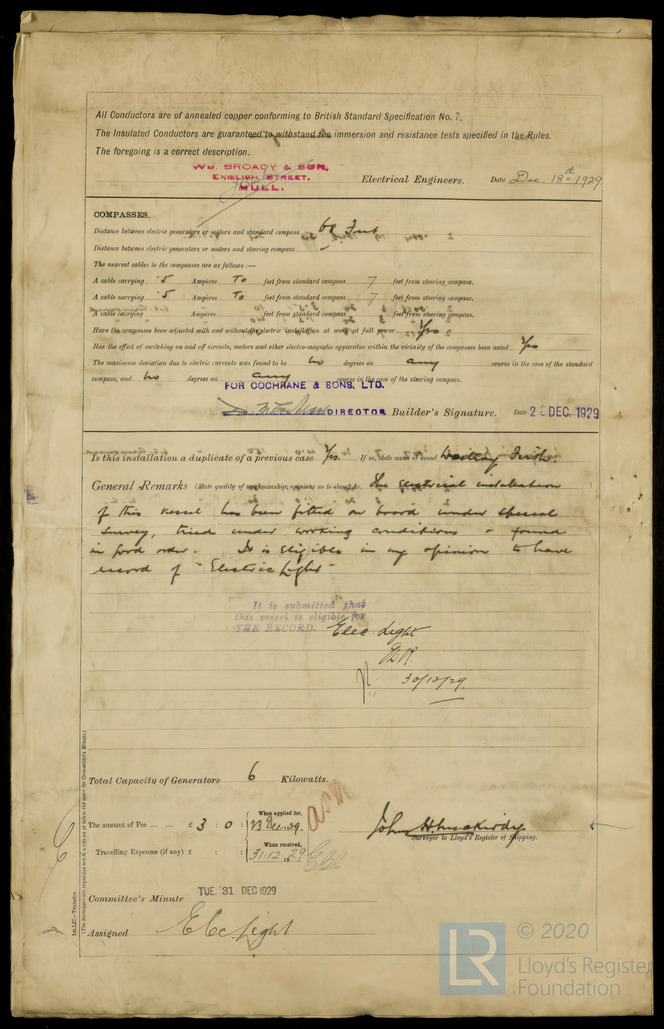 All Conductors are of annealed copper conforming to British Standard Specification No. 7.
The Insulated Conductors are guaranteed to withstand the immersion and resistance tests specified in the Rules.
The foregoing is a correct description.
WM. BROADY & SON,
ENGLISH STREET,
HULL.
Electrical Engineers. Date Dec. 18th 1929
COMPASSES.
Distance between electric generators or motors and standard compass 68 Feet
Distance between electric generators or motors and steering compass
The nearest cables to the compasses are as follows:—
A cable carrying .5 Ampères To feet from standard compass 7 feet from steering compass.
A cable carrying .5 Ampères To feet from standard compass 7 feet from steering compass.
A cable carrying Ampères feet from standard compass feet from steering compass.
Have the compasses been adjusted with and without the electric installation at work at full power Yes
Has the effect of switching on and off circuits, motors and other electro-magnetic apparatus within the vicinity of the compasses been noted Yes
The maximum deviation due to electric currents was found to be no degrees on any course in the case of the standard
compass, and no degrees on any course in the case of the steering compass.
FOR COCHRANE & SONS, LTD.
DIRECTOR Builder's Signature. Date 20 DEC. 1929
Is this installation a duplicate of a previous case Yes. If so, state name of vessel
General Remarks (State quality of workmanship, opinions as to class, &c. The electrical installation
of this vessel has been fitted on board under special
survey, tried under working conditions & found
in good order. It is eligible in my opinion to have
record of "Electric Light"
It is submitted that
this vessel is eligible for
THE RECORD. Elec Light
30/12/29
Total Capacity of Generators 6 Kilowatts.
The amount of Fee ... ... £ 3 : 0 : When applied for, 23 Dec 29
Travelling Expenses (if any) £ : : When received, 31.12.29
Surveyor to Lloyd's Register of Shipping.
Committee's Minute TUE. 31 DEC 1929
Assigned Elec Light
1m,1,27.—Transfer.
(The Surveyors are requested not to write on or below the space for Committee's Minute.)
LR
© 2020
Lloyd's Register
Foundation